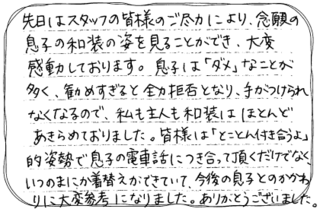 先日はスタッフの皆様のご尽力により、念願の
息子の和装の姿を見ることができ、大変
感動しております。息子は「ダメ」なことが
多く、勧めすぎると全力拒否となり、手がつけられ
なくなるので、私も主人も和装はほとんど
あきらめておりました。皆様は「とことん付き合うよ」
的姿勢で息子の電車話につき合って頂くだけでなく、
いつのまにか着替えができていて、今後の息子とのかかわ
りに大変参考になりました。ありがとうございました。